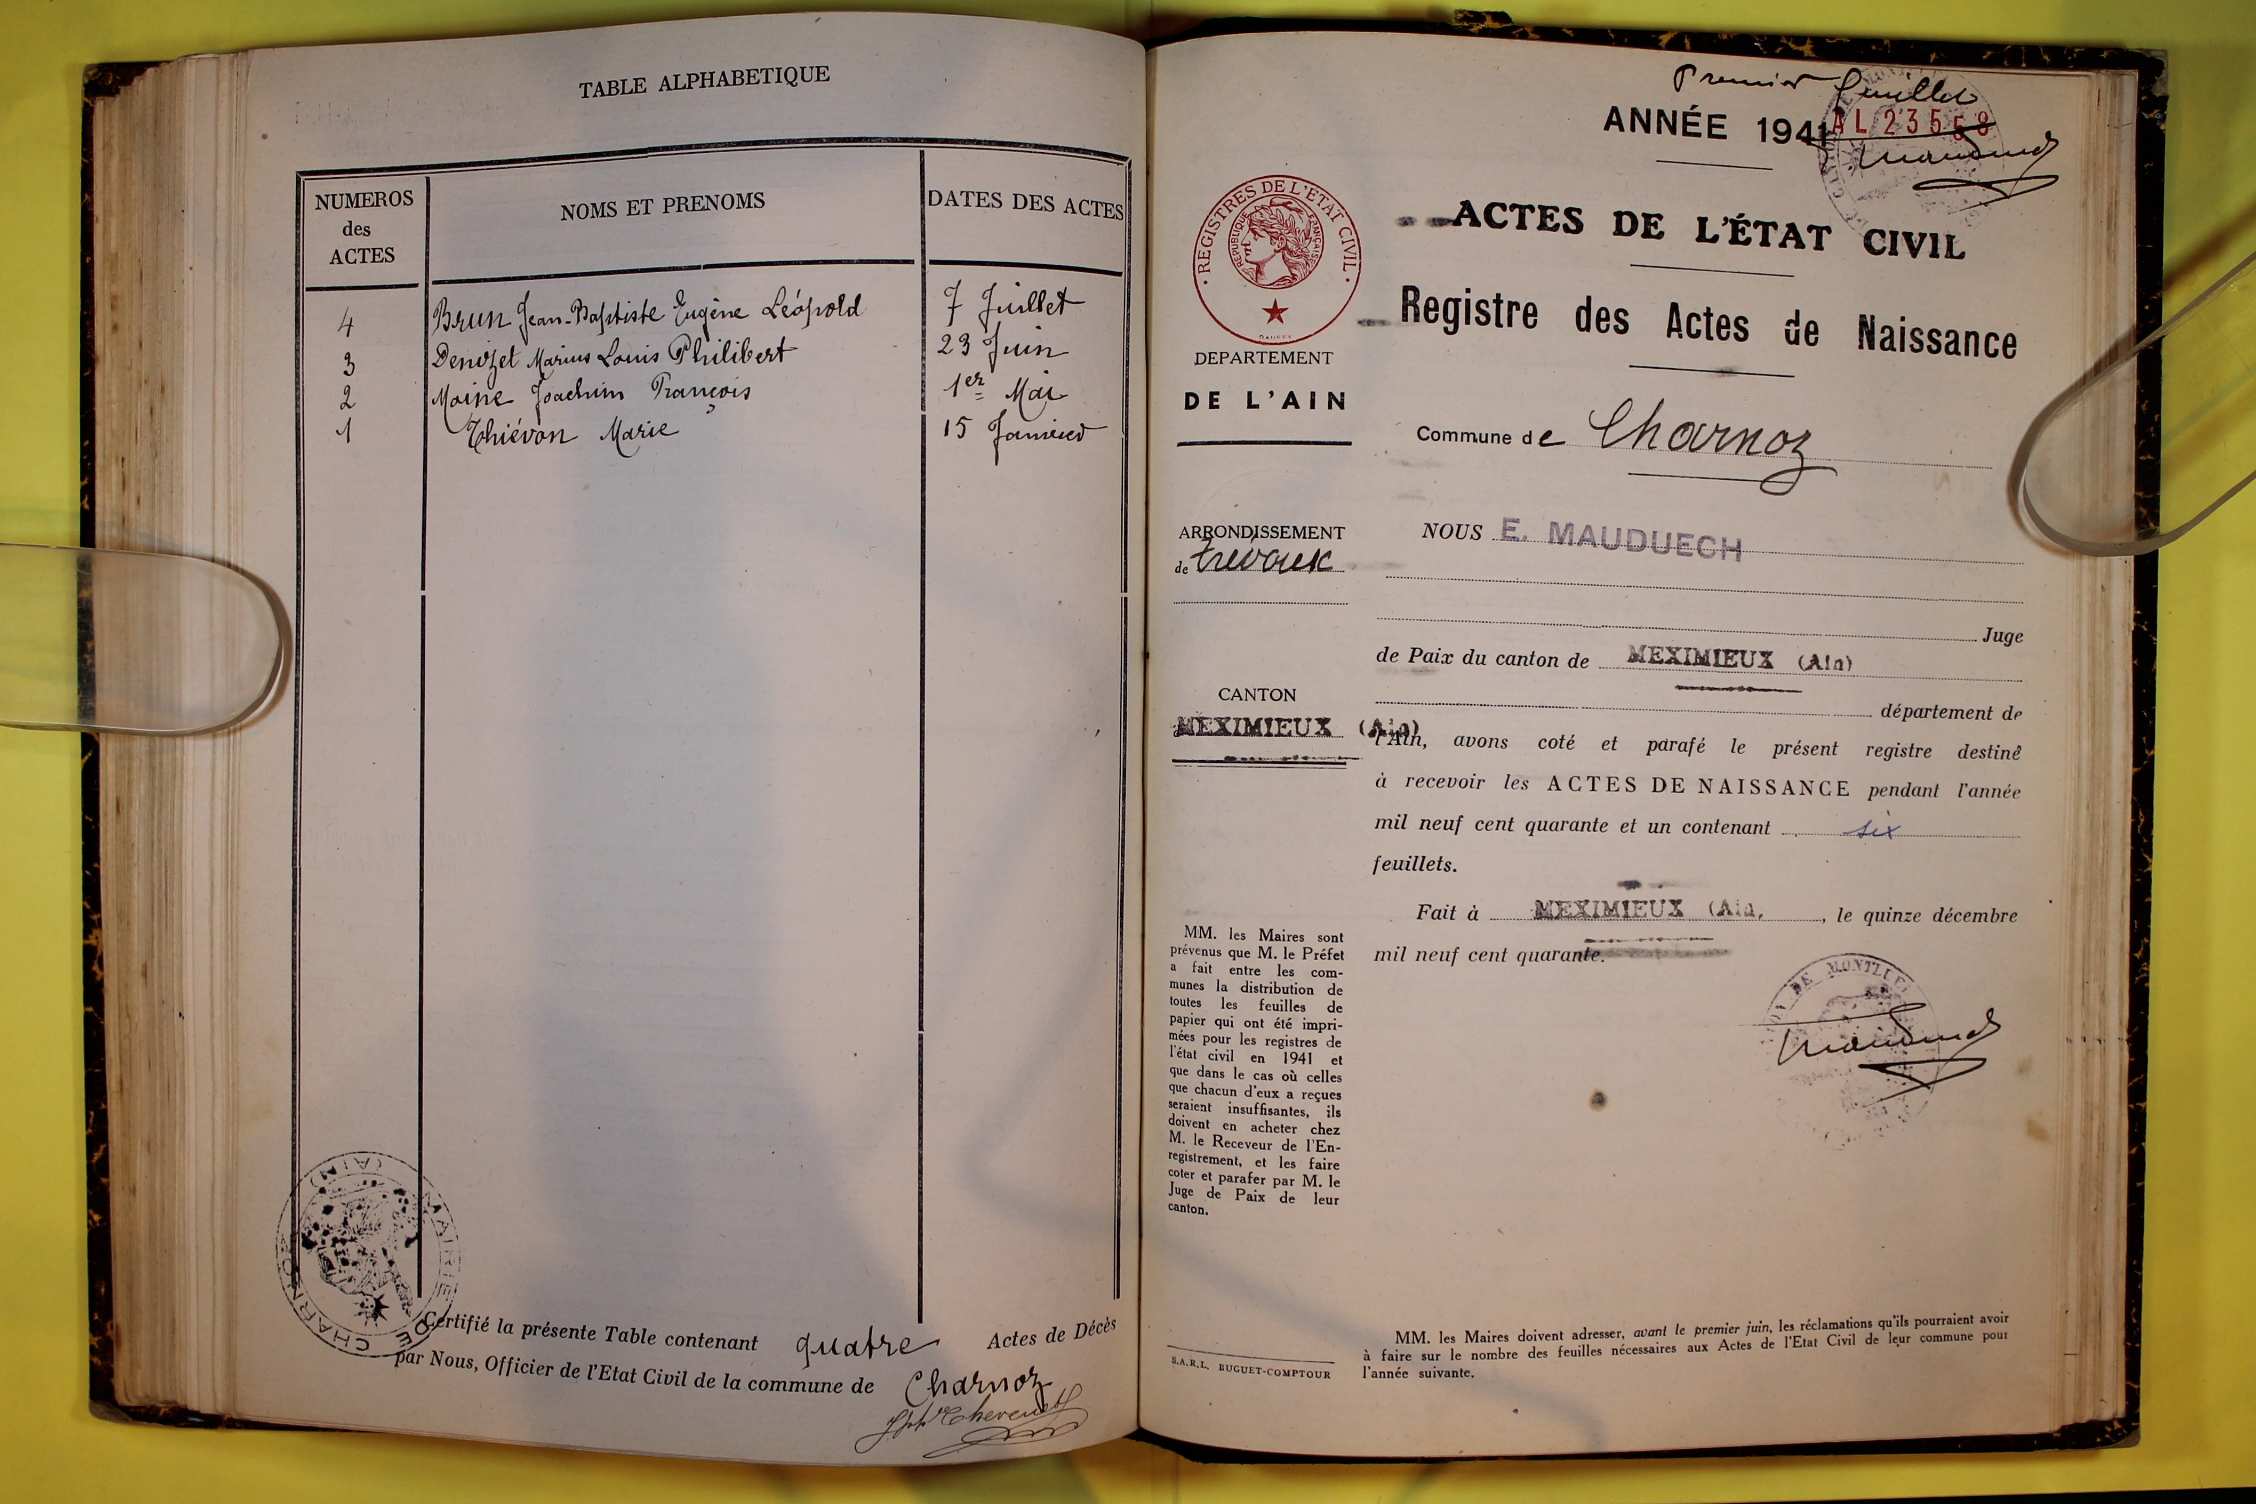 TABLE ALPHABETIQUE
NUMEROS
des
ACTES
NOMS ET PRENOMS
DATES DES ACTES
4 Brun Jean-Baptiste Eugène Léopold 7 Juillet
3 Denizet Marius Louis Philibert 23 Juin
2 Moine Joachim François 1er Mai
1 Thiévon Marie 15 Janvier
MAIRIE DE CHARNOZ (AIN)
Certifié la présente Table contenant quatre Actes de Décès
par Nous, Officier de l'Etat Civil de la commune de Charnoz
Premier feuillet
ANNÉE 1941
AL 23558
ACTES DE L'ÉTAT CIVIL
Registre des Actes de Naissance
Commune de Charnoz
· REGISTRES DE L'ETAT CIVIL ·
REPUBLIQUE FRANÇAISE
DEPARTEMENT
DE L'AIN
ARRONDISSEMENT
de Trévoux
CANTON
MEXIMIEUX (Ain)
MM. les Maires sont
prévenus que M. le Préfet
a fait entre les com-
munes la distribution de
toutes les feuilles de
papier qui ont été impri-
mées pour les registres de
l'état civil en 1941 et
que dans le cas où celles
que chacun d'eux a reçues
seraient insuffisantes, ils
doivent en acheter chez
M. le Receveur de l'En-
registrement, et les faire
coter et parafer par M. le
Juge de Paix de leur
canton.
S.A.R.L. BUGUET-COMPTOUR
NOUS E. MAUDUECH
Juge
de Paix du canton de MEXIMIEUX (Ain)
département de
l'Ain, avons coté et parafé le présent registre destiné
à recevoir les ACTES DE NAISSANCE pendant l'année
mil neuf cent quarante et un contenant six
feuillets.
Fait à MEXIMIEUX (Ain, le quinze décembre
mil neuf cent quarante.
MM. les Maires doivent adresser, avant le premier juin, les réclamations qu'ils pourraient avoir
à faire sur le nombre des feuilles nécessaires aux Actes de l'Etat Civil de leur commune pour
l'année suivante.